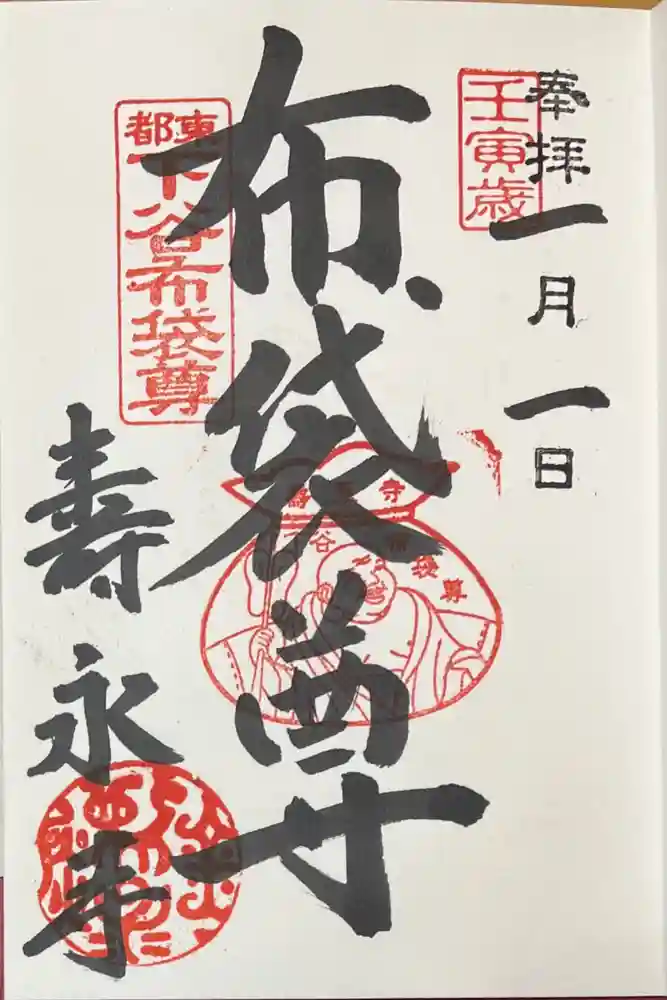 奉拝
一月一日
壬寅歳
布袋尊
東都
下谷布袋尊
寺
谷
袋尊
壽永寺